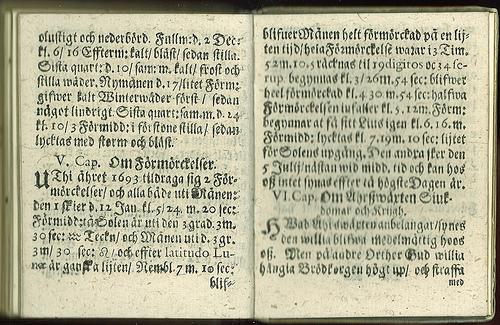 olustigt och nederbörd. Fullm: d. 2 Dec:
kl. 6/ 16 Effterm: kalt/ blåst/ sedan stilla.
Sista quart: d. 10/ sam: m. kalt/ frost och
stilla wäder. Nymånen d. 17/ litet Förm:
gifwer kalt Winterwäder först/ sedan
något lindrigt. Sista quart: sam: m. d. 24
kl. 10/ 3 Förmidd: i förstone stilla/ sedan
lycktas med storm och blåst.
V. Cap. Om Förmörckelser.
UThi åhret 1693 tildraga sig 2 För-
mörckelser/ och alla både uti Månen:
den 1 sker d. 12 Jan. kl. 5/ 24. m. 20 sec:
Förmidd: tå Solen är uti den 3 grad. 3m.
30 sec: ♒ Tecken/ och Månen uti d. 3. gr.
3 m/ 30 sec: ♌/ och effter latitudo Lu-
næ är ganska lijten/ Nembl. 7 m. 10 sec:
blif-
blifuer Månen helt förmörckad på en lij-
ten tid/ hela Förmörckelse warar i 3 Tim.
52 m. 10 s. räcknas til 19 digitos oc 34 sc-
rup. begynnas kl. 3/ 26 m. 54 sec: blifwer
heel förmörckad kl. 4. 30 m. 54 sec: half wa
Förmörckelsen infaller kl. 5. 12 m. Förm:
begynnar at få sitt Lius igen kl. 6. 16. m.
Förmidd: lycktas kl. 7. 19 m. 10 sec: lijtet
för Solens upgång. Den andra sker den
5 Julij/ nästan wid midd. tid och kan hos
oß intet synas effter tå högste Dagen är.
VI. Cap. Om Åhrswärten Siuk-
domar och Krigh.
HWad Åhrswärten anbelangar/ synes
den willia blifwa medelmåttig hoos
oß. Men på andre Orther Gud willia
hängia Brödkorgen högt up/ och straffa
med